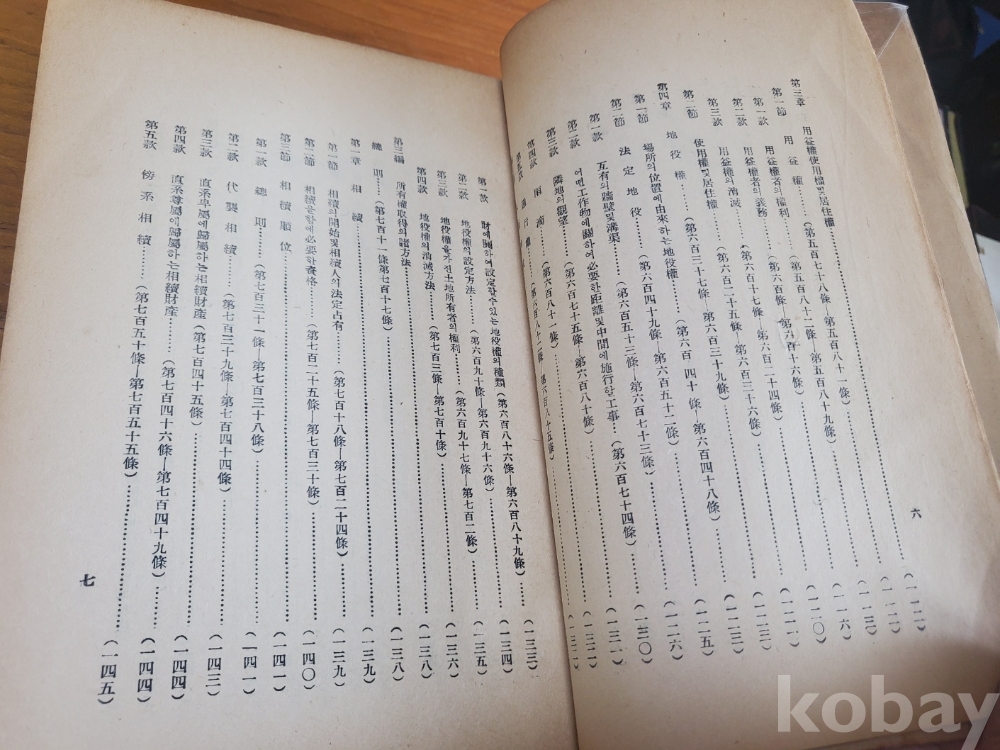 六
第三章 用益權使用權및居住權……(一一二)
第一節 用益權……(第五百七十八條、第五百八十一條)……(一一三)
第一款 用益權者의權利……(第五百八十二條—第五百八十九條)……(一一六)
第二款 用益權者의義務……(第六百條—第六百十六條)……(一二〇)
第三款 用益權의消滅……(第六百十七條—第六百二十四條)……(一二一)
第二節 使用權및居住權……(第六百二十五條—第六百三十六條)……(一二三)
第四章 地役權……(第六百三十七條、第六百三十九條)……(一二五)
第一節 場所의位置에由來하는地役權……(第六百四十條—第六百四十八條)……(一二六)
第二節 法定地役……(第六百四十九條、第六百五十二條)……(一三〇)
第一款 互有의牆壁및溝渠……(第六百五十三條—第六百七十三條)……(一三一)
第二款 어떤工作物에關하여必要한距離및中間에施行할工事…(第六百七十四條)
第三款 隣地의觀望……(第六百七十五條、第六百八十條)
第四款 雨滴……(第六百八十一條)
第五款 通行權……(第六百八十二條、第六百八十五條)
第一款 財에關하여設定할수있는地役權의種類(第六百八十六條—第六百八十九條)……(一三三)
第二款 地役權의設定方法……(第六百九十條—第六百九十六條)……(一三四)
第三款 地役權을가진土地所有者의權利……(第六百九十七條—第七百二條)……(一三五)
第四款 地役權의消滅方法……(第七百三條—第七百十條)……(一三六)
第三編 所有權取得의諸方法……(一三八)
總則……(第七百十一條第七百十七條)……(一三八)
第一章 相續……(一三九)
第一節 相續의開始및相續人의法定占有……(第七百十八條—第七百二十四條)……(一三九)
第二節 相續을함에必要한資格……(第七百二十五條—第七百三十條)……(一四〇)
第三節 相續順位……(一四一)
第一款 總則……(第七百三十一條—第七百三十八條)……(一四一)
第二款 代襲相續……(第七百三十九條—第七百四十四條)……(一四三)
第三款 直系卑屬에歸屬하는相續財產……(第七百四十五條)……(一四四)
第四款 直系尊屬에歸屬하는相續財產……(第七百四十六條—第七百四十九條)……(一四四)
第五款 傍系相續……(第七百五十條—第七百五十五條)……(一四五)
七
kobay